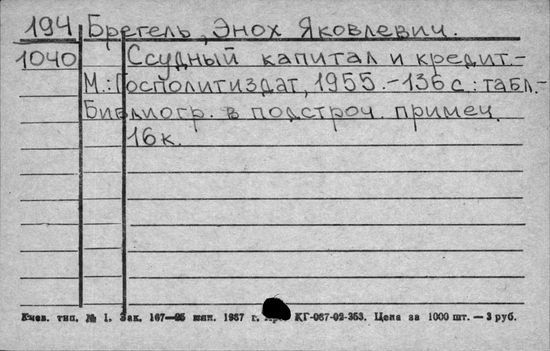 194 Брегель, Энох Яковлевич.
1040 Ссудный капитал и кредит.-
М.: Госполитиздат, 1955.-136 с.: табл.-
Библиогр. в подстроч. примеч.
16 к.
тип. № 1. Зак. 167—25 млн. 1987 г. КГ-087-02-363. Цена за 1000 шт. — 3 руб.